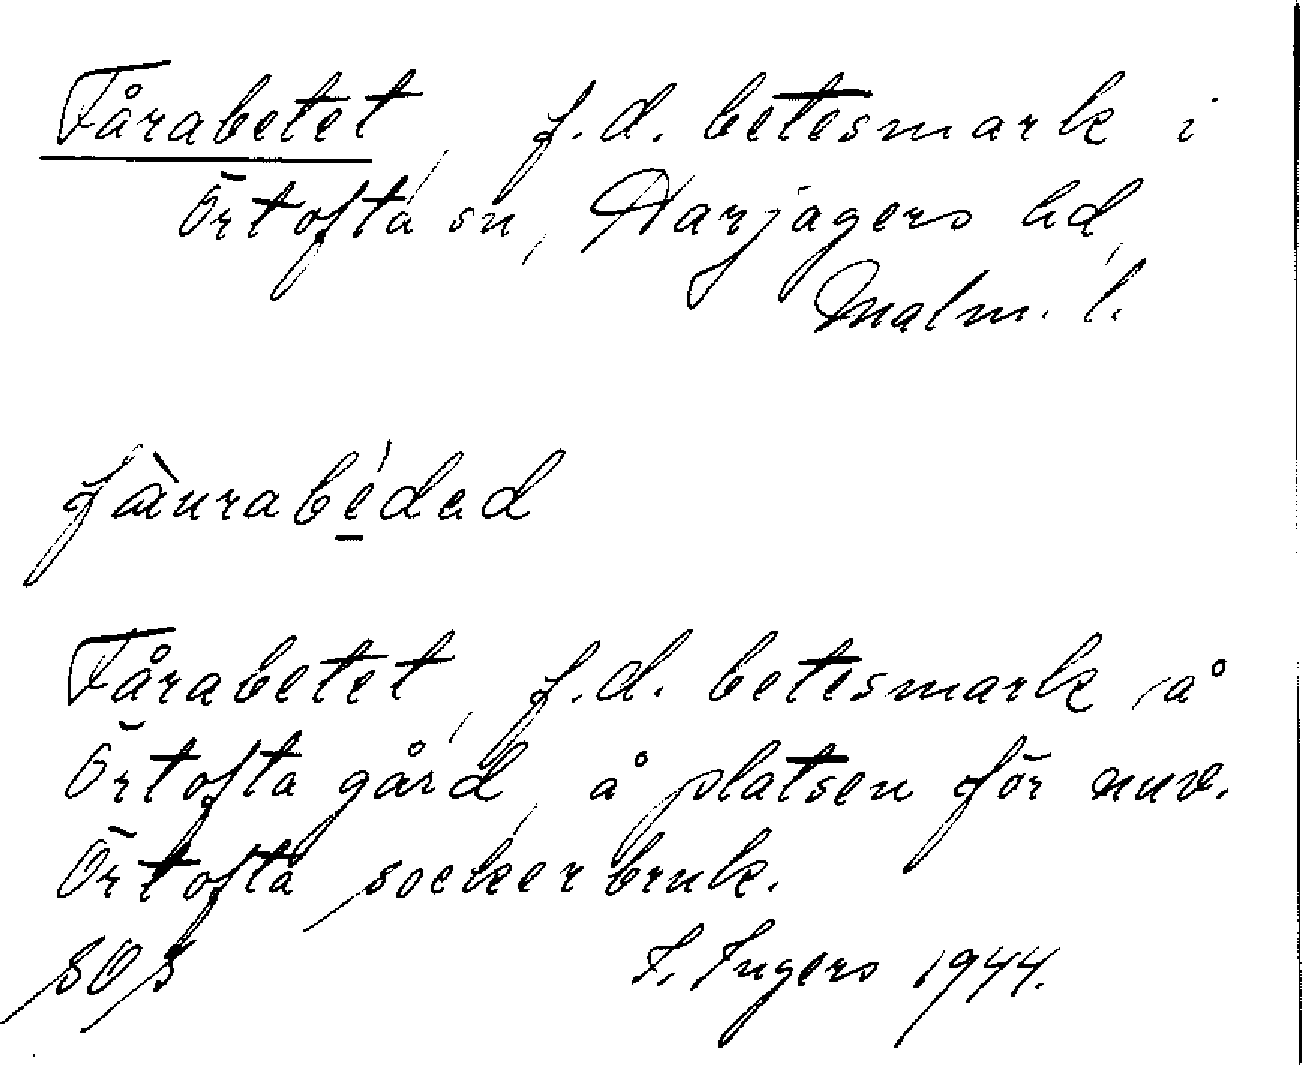 Fårabetet, f.d. betesmark i
Örtofta sn, Harjagers hd,
Malm. l.
fàurabe̱´dad
Fårabetet, f.d. betesmark å
Örtofta gård, å platsen för nuv.
Örtofta sockerbruk.
I. Ingers 1944.